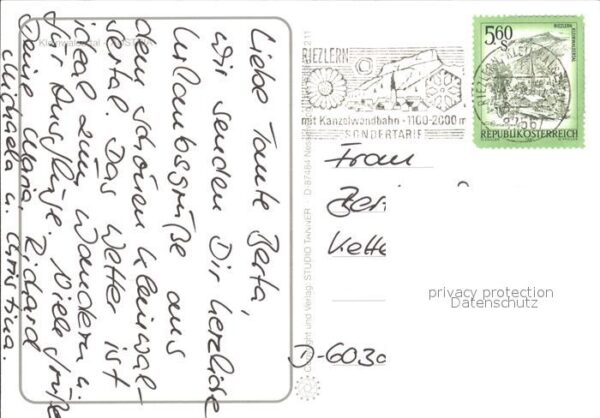 Liebe Tante Berta,
wir senden Dir herzliche
Urlaubsgrüße aus
dem schönen Kleinwal-
sertal. Das Wetter ist
ideal zum Wandern u.
für Ausflüge. Viele Grüße
Deine Maria, Richard
Michaela u. Christina.
RIEZLERN
mit Kanzelwandbahn · 1100-2000 m
SONDERTARIF
5,60
S
RIEZLERN
KLEINWALSERTAL
REPUBLIK ÖSTERREICH
Frau
Kette
D-6030
Copyright und Verlag: STUDIO TANNER D-87484 Nesselwang
privacy protection
Datenschutz